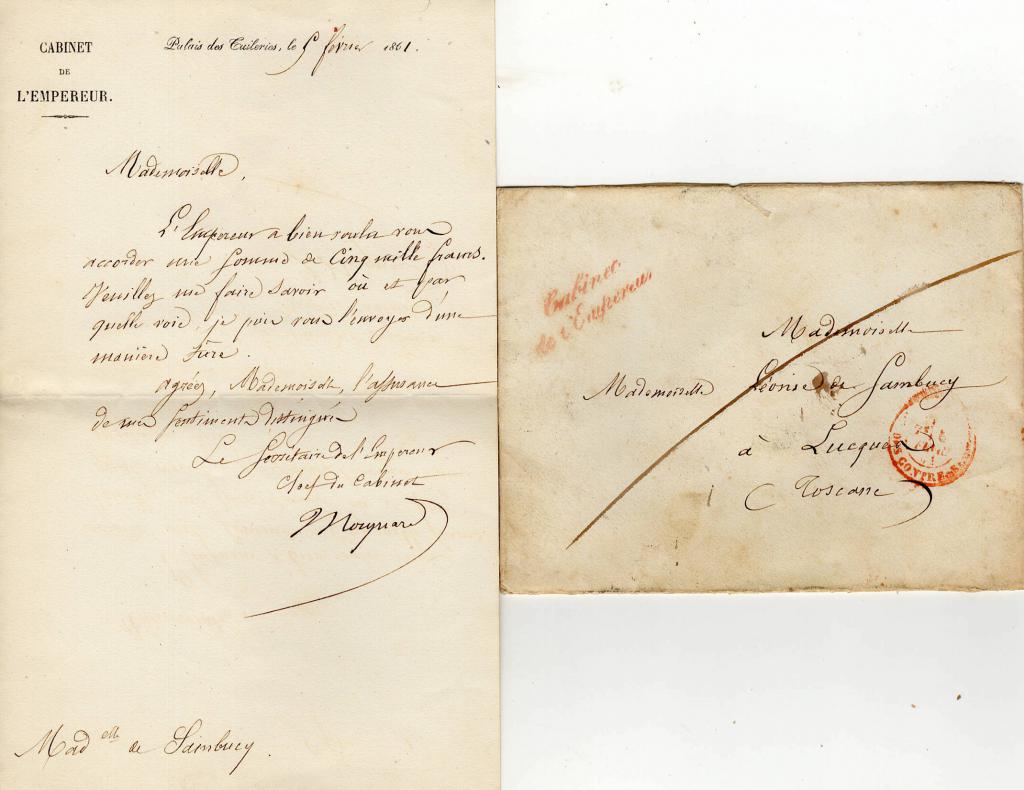 CABINET
DE
L'EMPEREUR.
Palais des Tuileries, le 5 février 1861.
Mademoiselle,
L'Empereur a bien voulu vous
accorder une somme de Cinq mille francs.
Veuillez me faire savoir où et par
quelle voie, je puis vous l'envoyer d'une
manière sûre.
agréez, Mademoiselle, l'assurance
de mes sentiments distingués
Le Secrétaire de l'Empereur
Chef du Cabinet
Mocquard
Mad elle de Sambucy.
Cabinet
de l'Empereur
Mademoiselle
Mademoiselle Léonise de Sambucy
à Lucques
(Toscane)